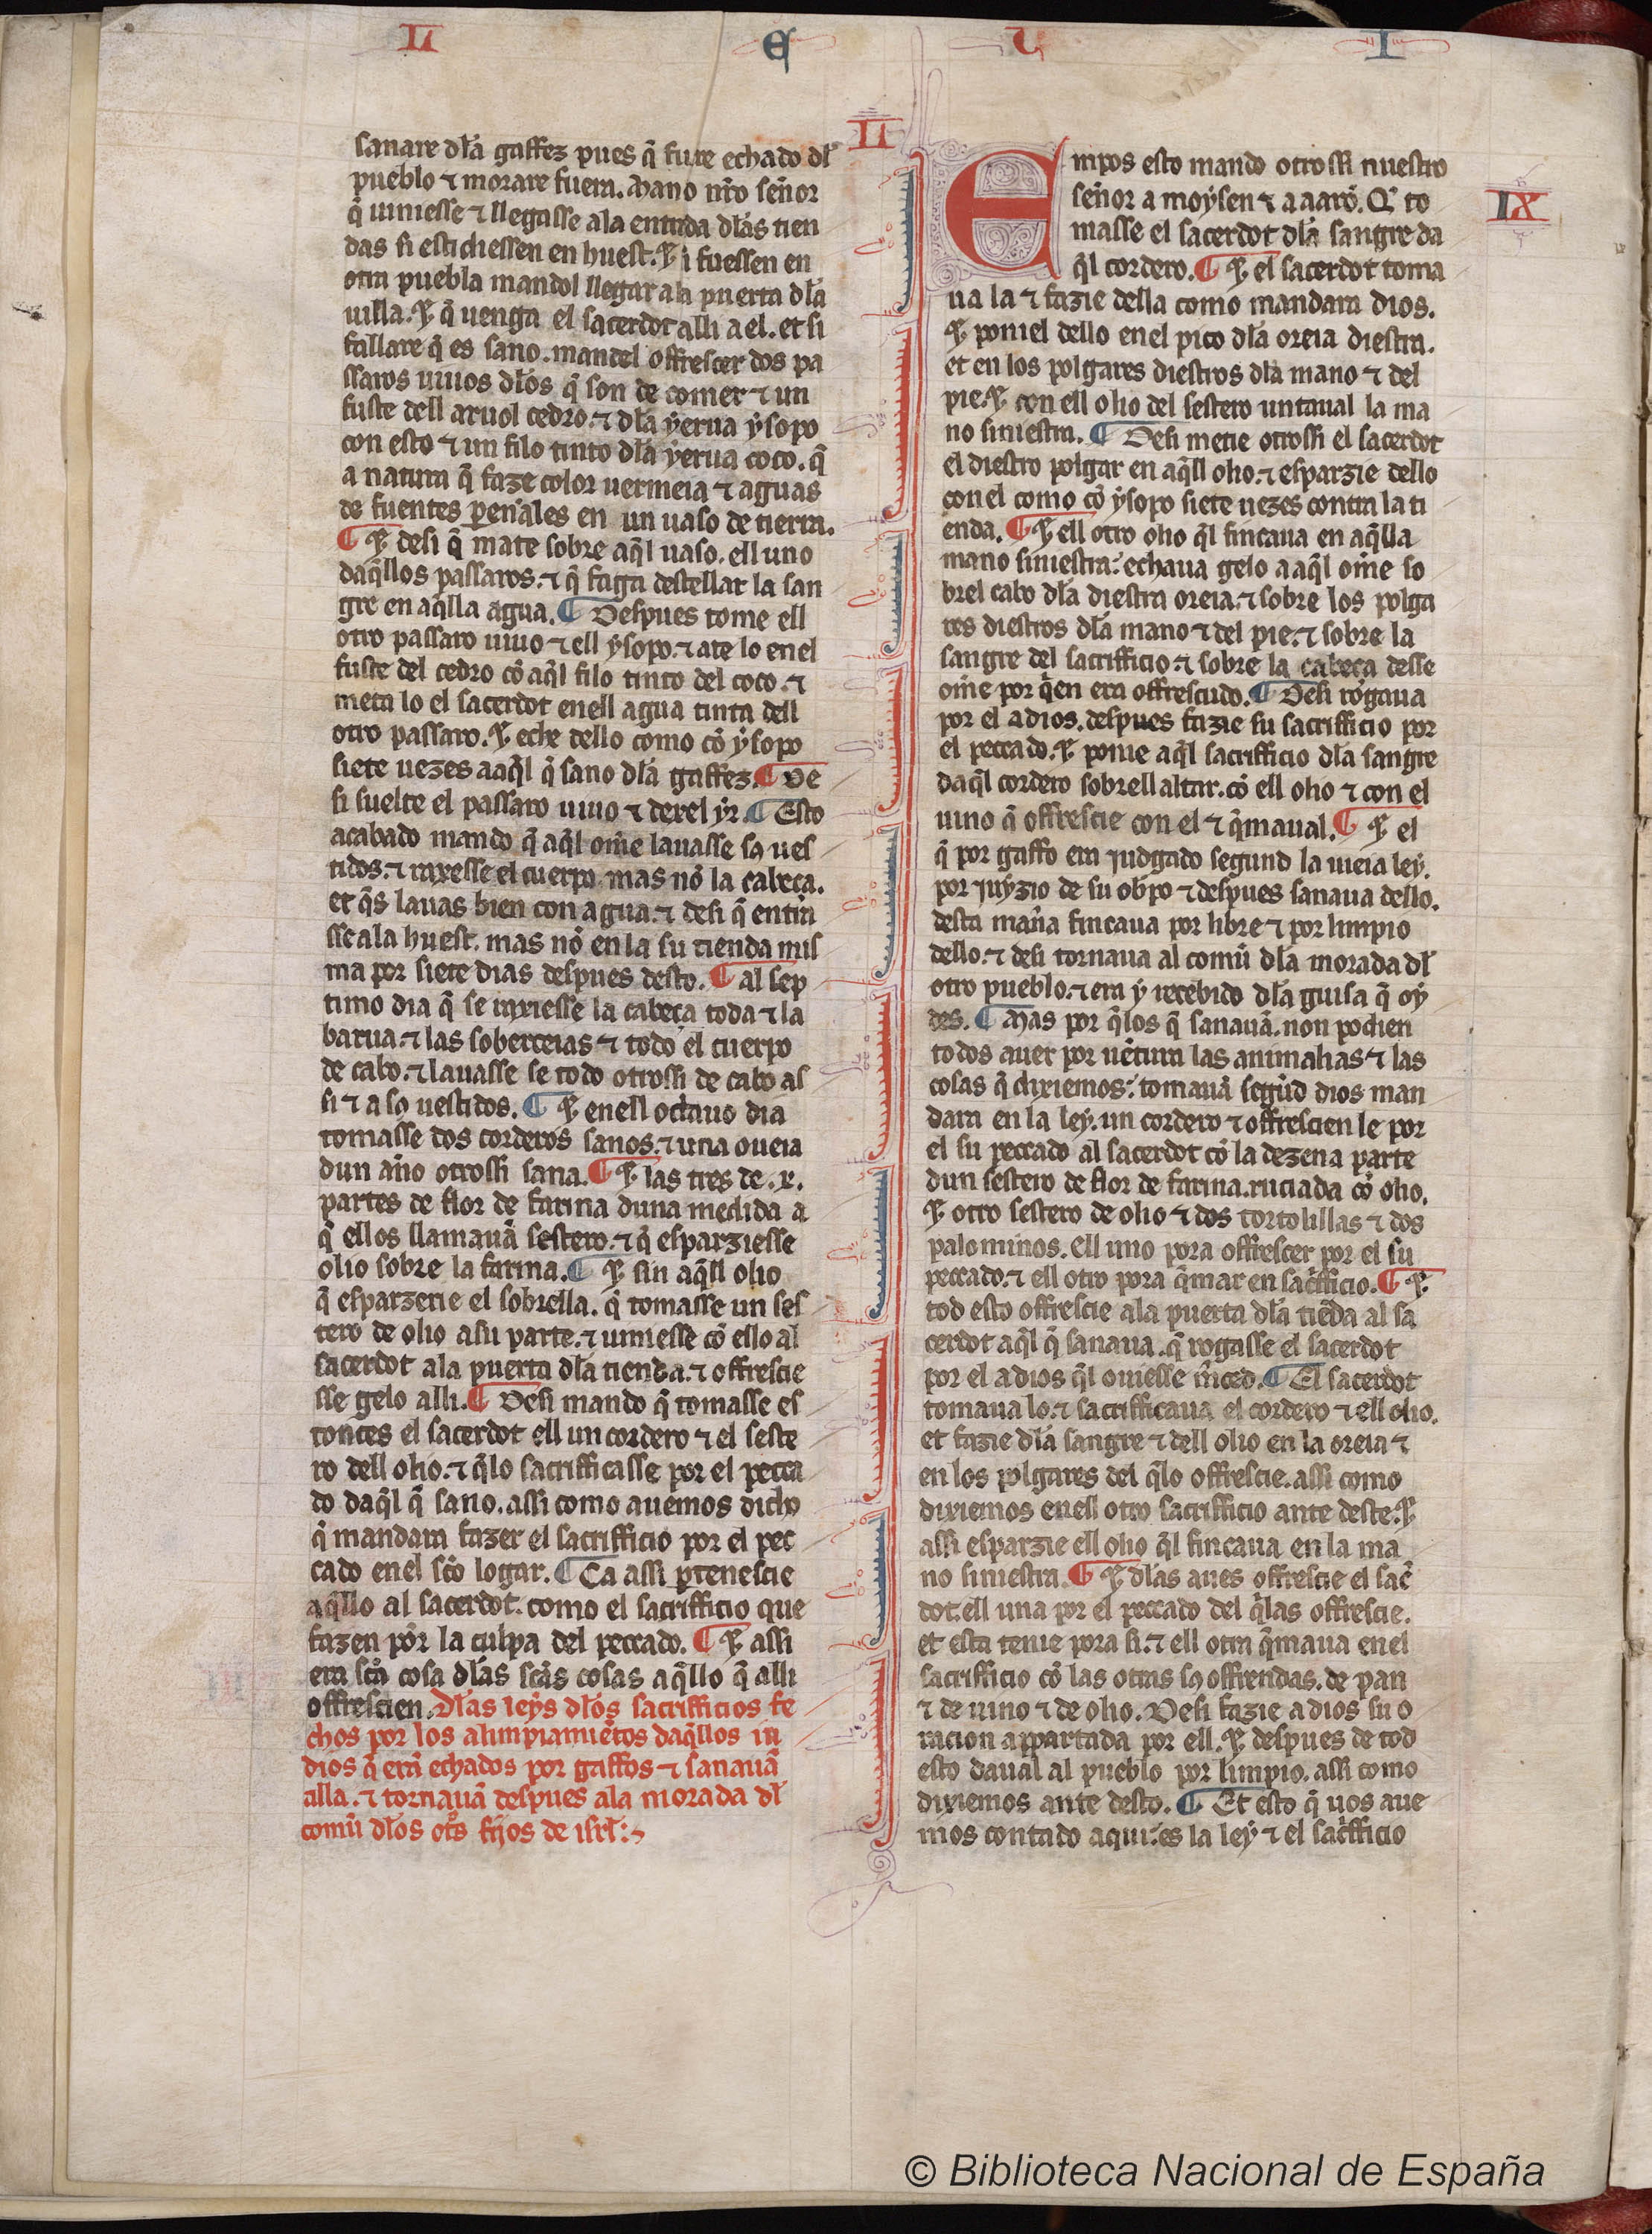 L E U I
II
IX
sanare dła gaffez pues q̃ fure echado dł
pueblo ⁊ morare fuera. Mano nr̃o señor
q̃ uiniesse ⁊ llegasse ala entrada dłas tien
das si estidiessen en huest. ⁊ si fuessen en
otra puebla mandol llegar ala puerta dła
uilla. ⁊ q̃ uenga el sacerdot alli a el. et si
fallare q̃ es sano. mandel offrescer dos pa
ssaros uiuos dłos q̃ son de comer ⁊ un
fuste dell aruol cedro. ⁊ dła yerua ysopo
con esto ⁊ un filo tinto dła yerua coco. q̃
a natura q̃ faze color uermeia ⁊ aguas
de fuentes perẽales en un uaso de tierra.
¶ ⁊ desi q̃ mate sobre aq̃l uaso. ell uno
daq̃llos passaros. ⁊ q̃ faga destellar la san
gre en aq̃lla agua. ¶ Despues tome ell
otro passaro uiuo ⁊ ell ysopo. ⁊ ate lo en el
fuste del cedro cõ aq̃l filo tinto del coco. ⁊
meta lo el sacerdot enell agua tinta dell
otro passaro. ⁊ eche dello como cõ ysopo
siete uezes aaq̃l q̃ sano dła gaffez. ¶ De
si suelte el passaro uiuo ⁊ dexel yr. ¶ Esto
acabado mando q̃ aq̃l om̃e lauasse sꝯ ues
tidos. ⁊ rayesse el cuerpo mas nõ la cabeça.
et q̃s lauas bien con agua. ⁊ desi q̃ entra
sse ala huest. mas nõ en la su tienda mis
ma por siete dias despues desto. ¶ al sep
timo dia q̃ se rayesse la cabeça toda ⁊ la
barua. ⁊ las soberceias ⁊ todo el cuerpo
de cabo. ⁊ lauasse se todo otrossi de cabo as
si ⁊ a sꝯ uestidos. ¶ ⁊ enell octauo dia
tomasse dos corderos sanos. ⁊ una oueia
dun año otrossi sana. ¶ ⁊ las tres de .x.
partes de flor de farina duna medida a
q̃ ellos llamauã sestero. ⁊ q̃ esparziesse
olio sobre la farina. ¶ ⁊ sin aq̃ll olio
q̃ esparzerie el sobrella. q̃ tomasse un ses
tero de olio a su parte. ⁊ uiniesse cõ ello al
sacerdot ala puerta dła tienda. ⁊ offrescie
sse gelo alli. ¶ Desi mando q̃ tomasse es
tonces el sacerdot ell un cordero ⁊ el seste
ro dell olio. ⁊ q̃lo sacrifficasse por el pecca
do daq̃l q̃ sano. assi como auemos dicho
q̃ mandara fazer el sacrifficio por el pec
cado enel sc̃o logar. ¶ Ca assi ꝑtenescie
aq̃llo al sacerdot. como el sacrifficio que
fazen por la culpa del peccado. ¶ ⁊ assi
era sc̃a cosa dłas sc̃as cosas aq̃llo q̃ alli
offrescien. Dłas leys dłos sacrifficios fe
chos por los alimpiamiẽtos daq̃llos iu
dios q̃ erã echados por gaffos ⁊ sanauã
alla. ⁊ tornauã despues ala morada dł
comũ dłos otros fijos de isrł:
Empos esto mando otrossi nuestro
señor a moysen ⁊ a aarõ. Q̃ to
masse el sacerdot dła sangre da
q̃l cordero. ¶ ⁊ el sacerdot toma
ua la ⁊ fazie della como mandara dios.
⁊ poniel dello enel pico dła oreia diestra.
et en los polgares diestros dła mano ⁊ del
pie. ⁊ con ell olio del sestero untaual la ma
no siniestra. ¶ Desi metie otrossi el sacerdot
el diestro polgar en aq̃ll olio. ⁊ esparzie dello
con el como cõ ysopo siete uezes contra la ti
enda. ¶ ⁊ ell otro olio q̃l fincaua en aq̃lla
mano siniestra: echaua gelo a aq̃l om̃e so
brel cabo dła diestra oreia. ⁊ sobre los polga
res diestros dła mano ⁊ del pie. ⁊ sobre la
sangre del sacrifficio. ⁊ sobre la cabeça desse
om̃e por q̃en era offrescudo. ¶ Desi rogaua
por el a dios. despues fazie su sacrifficio por
el peccado. ⁊ ponie aq̃l sacrifficio dła sangre
daq̃l cordero sobrell altar. cõ ell olio ⁊ con el
uino q̃ offrescie con el ⁊ q̃maual. ¶ ⁊ el
q̃ por gaffo era iudgado segund la uieia ley.
por iuyzio de su obp̃o ⁊ despues sanaua dello.
desta mañа fincaua por libre ⁊ por limpio
dello. ⁊ desi tornaua al comũ dła morada dł
otro pueblo. ⁊ era y recebido dła guisa q̃ oy
des. ¶ Mas por q̃los q̃ sanauã. non podien
todos auer por uẽtura las animalias ⁊ las
cosas q̃ dixiemos: tomauã segũd dios man
dara en la ley. un cordero ⁊ offrescien le por
el su peccado al sacerdot cõ la dezena parte
dun sestero de flor de farina. ruciada cõ olio.
⁊ otro sestero de olio ⁊ dos tortolillas ⁊ dos
palominos. ell uno pora offrescer por el su
peccado. ⁊ ell otro pora q̃mar en sac̃fficio. ¶ ⁊
tod esto offrescie ala puerta dła tiẽda al sa
cerdot aq̃l q̃ sanaua. q̃ rogasse el sacerdot
por el a dios q̃l ouiesse m̃ced. ¶ El sacerdot
tomaua lo. ⁊ sacrifficaua el cordero ⁊ ell olio.
et fazie dła sangre ⁊ dell olio en la oreia ⁊
en los polgares del q̃lo offrescie. assi como
dixiemos enell otro sacrifficio ante deste. ⁊
assi esparzie ell olio q̃l fincaua en la ma
no siniestra. ¶ ⁊ dłas aues offrescie el sac̃
dot. ell una por el peccado del q̃las offrescie.
et esta tenie pora si. ⁊ ell otra q̃maua enel
sacrifficio cõ las otras sꝯ offrendas. de pan
⁊ de uino ⁊ de olio. Desi fazie a dios su o
racion appartada por ell. ⁊ despues de tod
esto daual al pueblo por limpio. assi como
dixiemos ante desto. ¶ Et esto q̃ uos aue
mos contado aqui: es la ley ⁊ el sac̃fficio
© Biblioteca Nacional de España